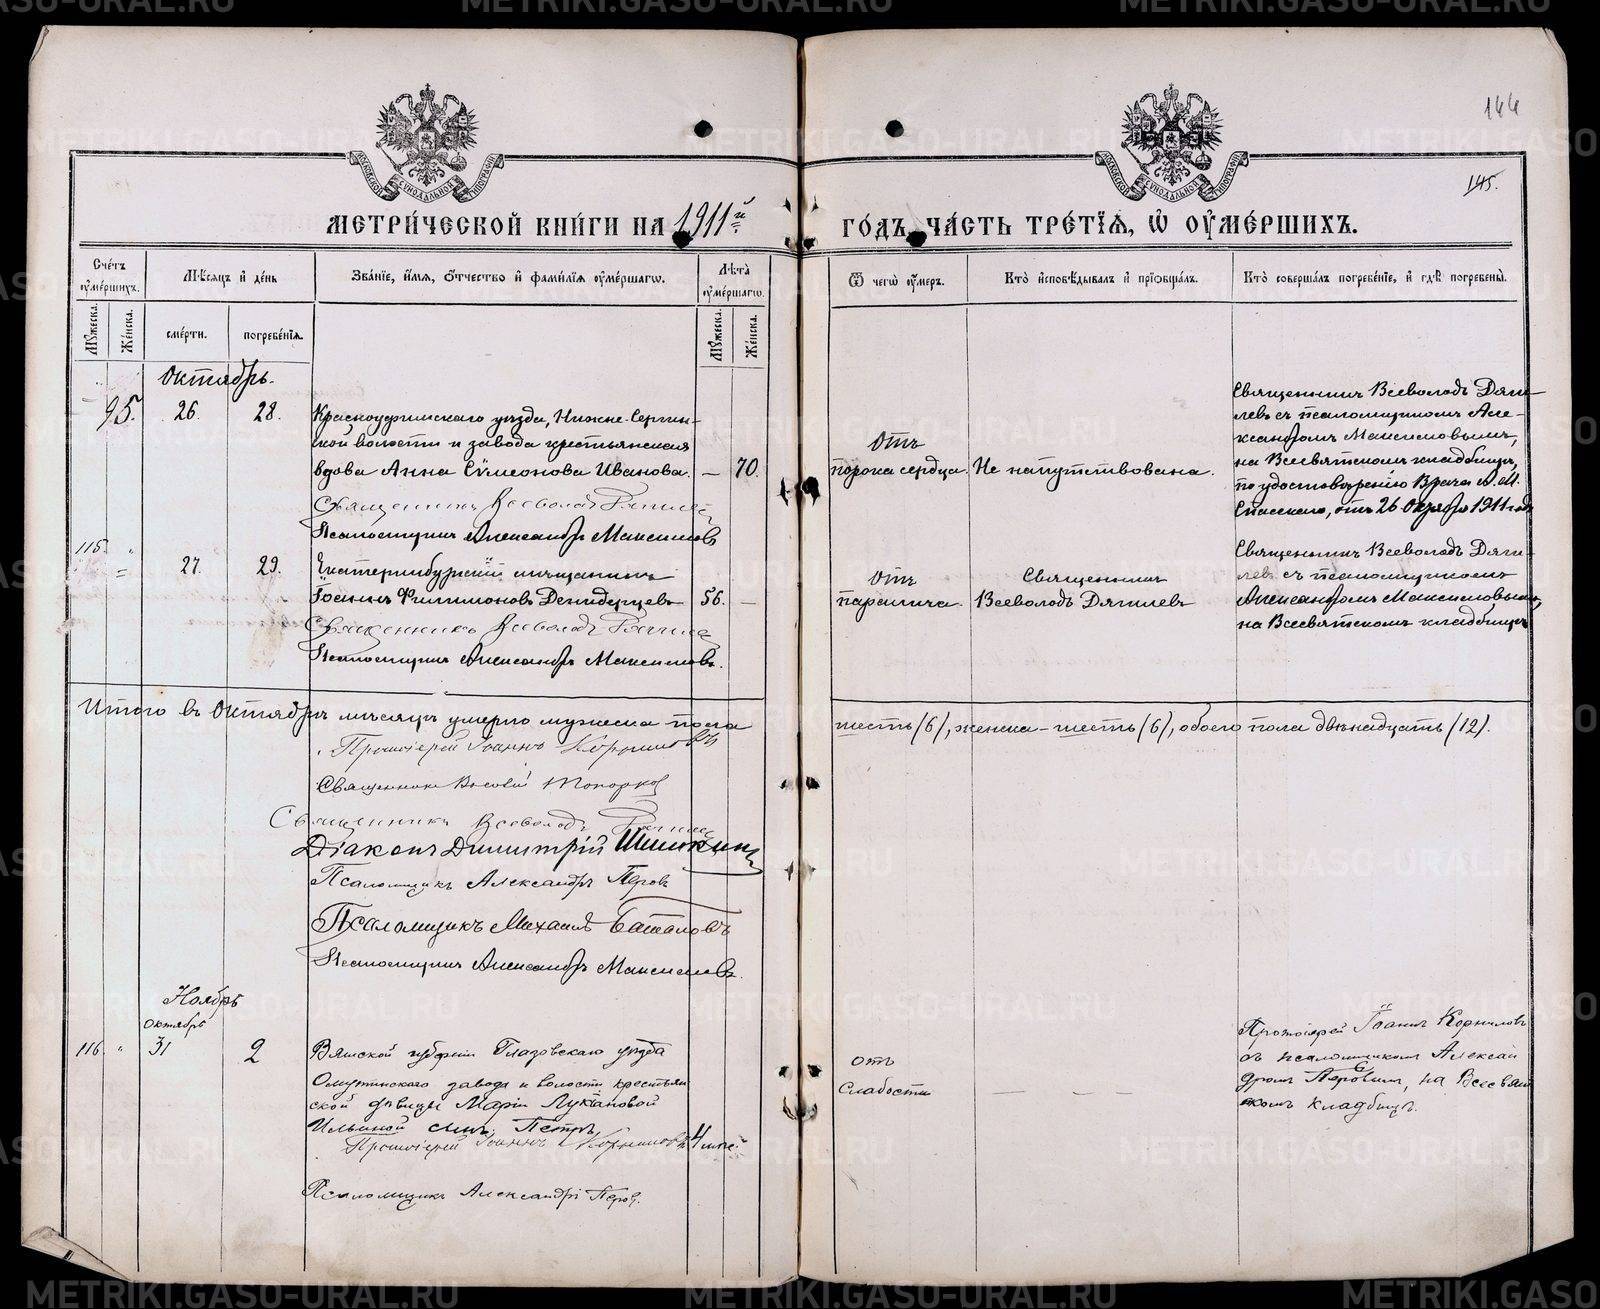 144
145.
МЕТРИ́ЧЕСКОЙ КНИ́ГИ НА 1911й
ГО́ДЪ, ЧА́СТЬ ТРЕ́ТЇѦ, Ѡ҆ ОУ҆МЕ́РШИХЪ.
Сче́тъ оу҆ме́ршихъ.
Мѣ́сѧцъ и҆ де́нь
Зва́нїе, и҆́мѧ, ѻ҆́тчество и҆ фами́лїѧ оу҆ме́ршагѡ.
Лѣ́та оу҆ме́ршагѡ.
Ѿ чегѡ̀ оу҆́меръ.
Кто̀ и҆сповѣ́дывалъ и҆ прїѡбща́лъ.
Кто̀ соверша́лъ погребе́нїе, и҆ гдѣ̀ погребены̀.
Мꙋ́жеска.
Же́нска.
сме́рти.
погребе́нїѧ.
Мꙋ́жеска.
Же́нска.
Октябрь.
95. 26. 28.
Красноуфимскаго уѣзда, Нижне-Сергин-
ской волости и завода крестьянская
вдова Анна Сѵмеонова Иванова. — 70.
Священникъ Всеволодъ Дягилевъ
Псаломщикъ Александръ Максимовъ
Отъ
порока сердца.
Не напутствована.
Священникъ Всеволодъ Дяги-
левъ съ псаломщикомъ Але-
ксандромъ Максимовымъ,
на Всевятскомъ кладбищѣ,
по удостовѣренію Врача А. М.
Спасскаго, отъ 26 Октября 1911 года
115. " 27. 29.
Екатеринбургскій мѣщанинъ
Іоаннъ Филимоновъ Демидерцевъ 56. —
Священникъ Всеволодъ Дягилевъ
Псаломщикъ Александръ Максимовъ.
Отъ
паралича.
Священникъ
Всеволодъ Дягилевъ
Священникъ Всеволодъ Дяги-
левъ съ псаломщикомъ
Александромъ Максимовымъ,
на Всевятскомъ кладбищѣ
Итого въ Октябрѣ мѣсяцѣ умерло мужеска пола
шесть (6), женска - шесть (6), обоего пола двѣнадцать (12).
Протоіерей Іоаннъ Корниловъ
Священникъ Топорков
Священникъ Всеволодъ Дягилевъ
Діаконъ Димитрій Шишкинъ
Псаломщикъ Александръ Перовъ
Псаломщикъ Михаилъ Баталовъ
Псаломщикъ Александръ Максимовъ.
Ноябрь
октябрь
116. " 31 2
Вятской губерніи Глазовскаго уѣзда
Омутнинскаго завода и волости крестьян
ской дѣвицы Маріи Лукіановой
Ильиной сынъ Петръ 4 мѣс.
Протоіерей Іоаннъ Корниловъ
Псаломщикъ Александръ Перов.
отъ
слабости
— — —
Протоіерей Іоаннъ Корниловъ
съ псаломщикомъ Алексан
дромъ Перовымъ, на Всесвят
скомъ кладбищѣ.
METRIKI.GASO-URAL.RU